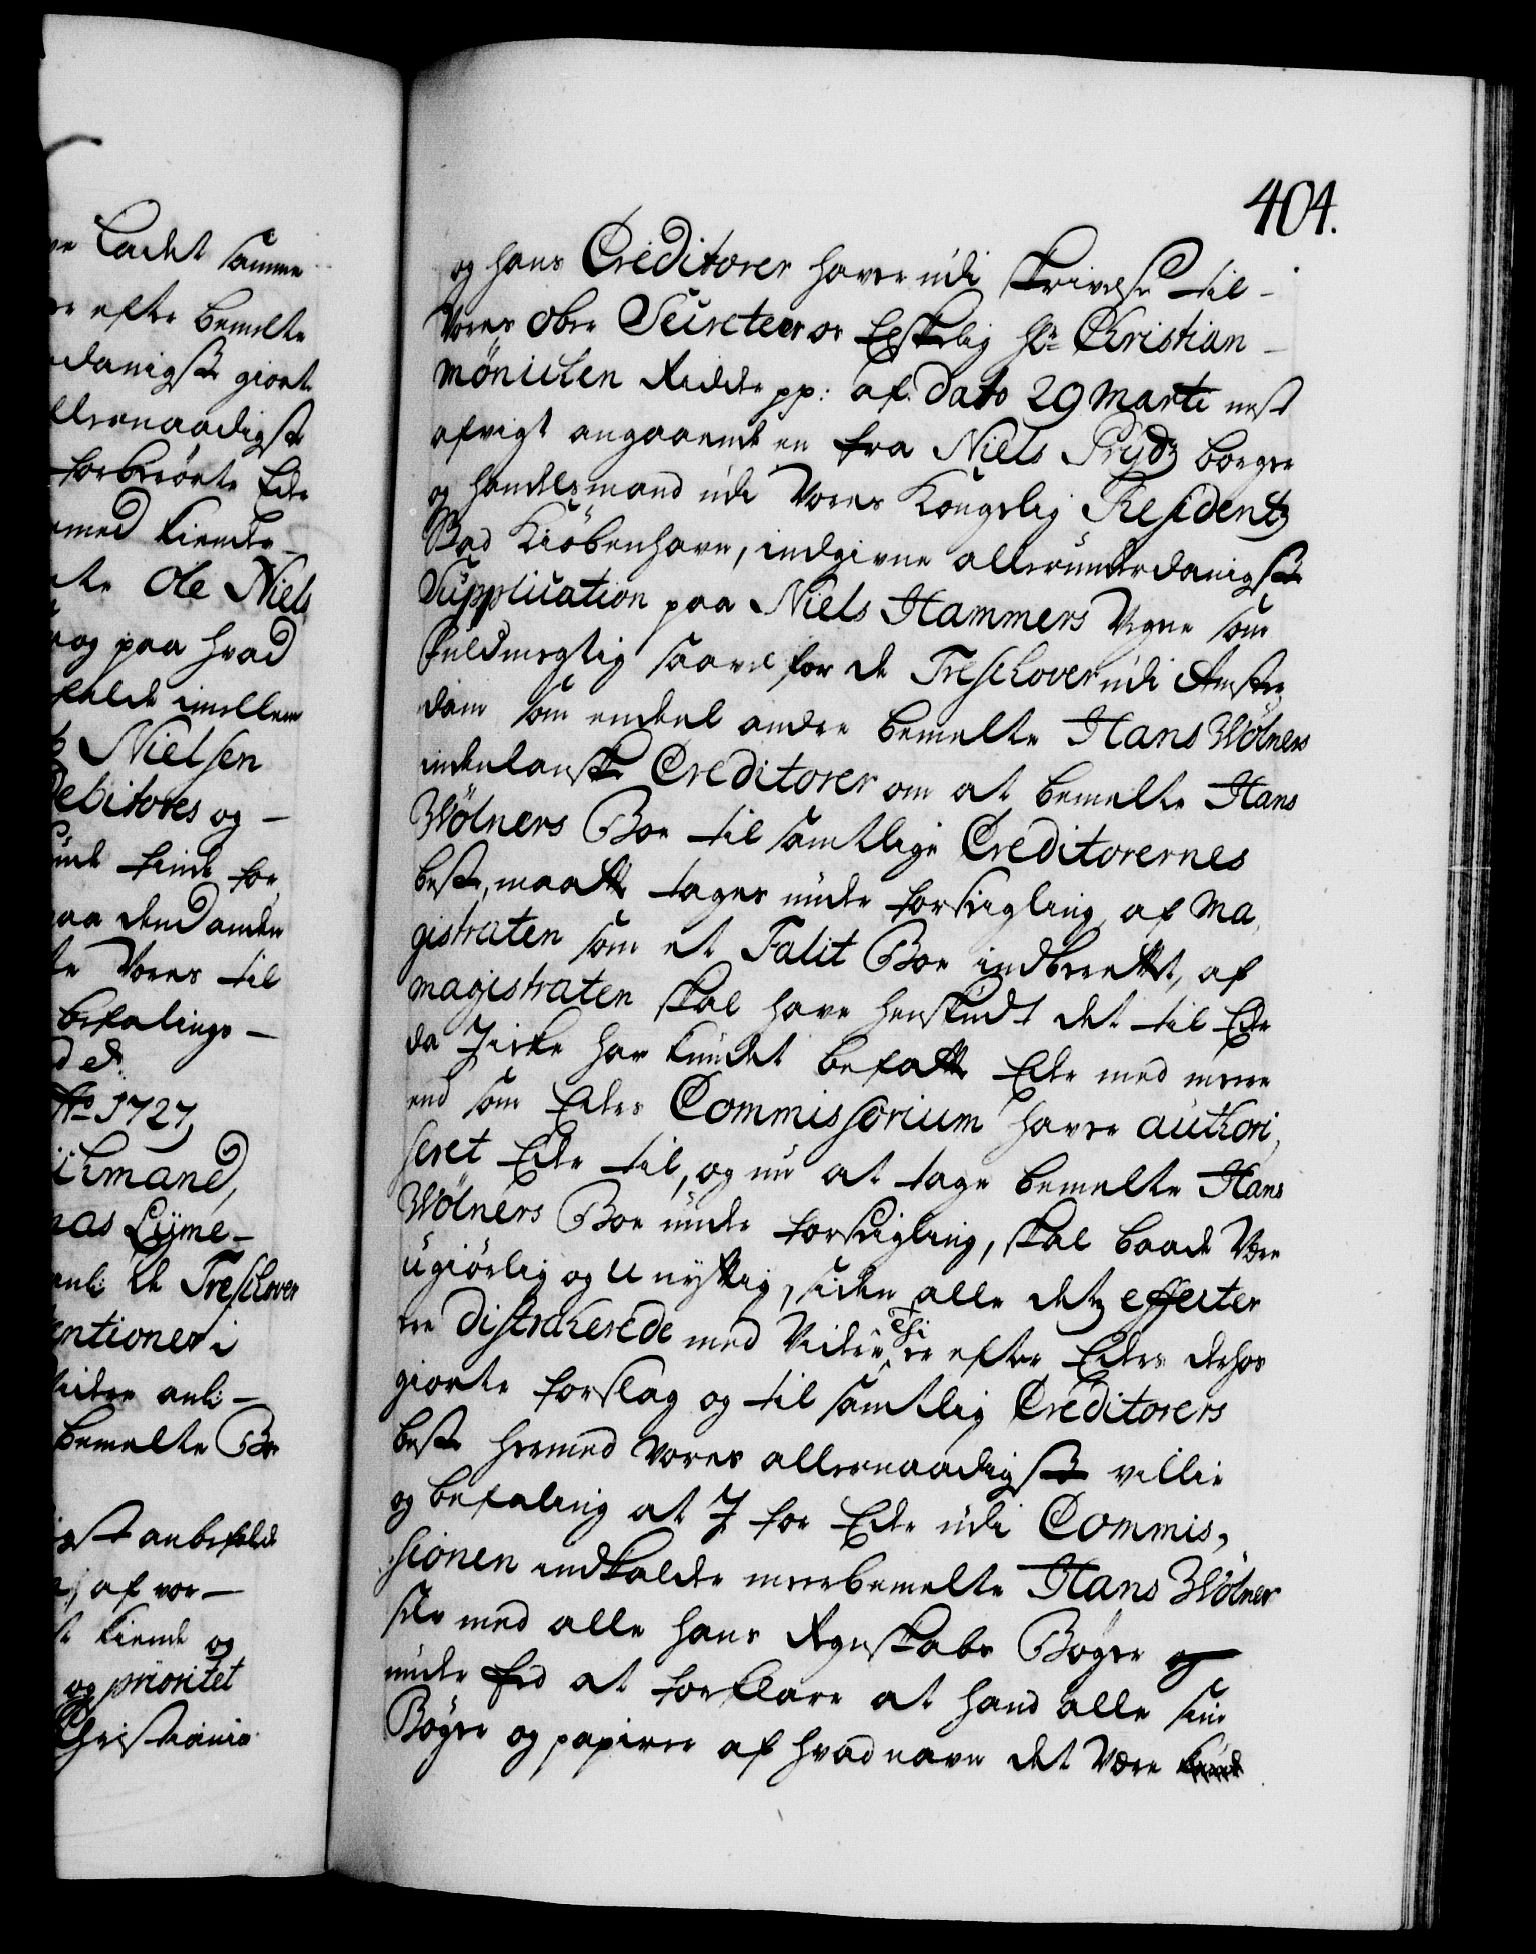 404.
og hans Creditorer haver udi skrivelse til
Vores ober Secreterer os Elskelig Hr. Christian
Mönichen Ridder pp: af dato 29 Marti nest
afvigt angaaende en fra Niels Prydz borger
og handelsmand udi Vores Kongelig Residentz
Stad Kiöbenhavn, indgivne allerunderdanigste
Supplication paa Niels Hammers Vegne som
fuldmegtig saavel for de Treschover udi Amster,
dam som endeel andre bemelte Hans Wölners
indenlanske Creditorer om at bemelte Hans
Wölners Boe til samtlige Creditorernes
beste, maatte tages under forsigling, af Ma,
gistraten som et Falit Boe indberettet, af
magistraten skal have henskudt det til Eder
da I icke har kundet befatte Eder med mere
end som Eders Commissorium haver authori,
seret Eder til, og nu at tage bemelte Hans
Wölners Boe under forsigling, skal baade Være
ugiörlig og unyttig, siden alle detz effecter
ere distraherede med Videre,
er efter Eders derhos
giorte forslag og til samtlig Creditorers
beste hermed Vores allernaadigste villie
og befaling at I for Eder udi Commis,
sionen indkalder meerbemelte Hans Wölner
selv med alle hans Regnskabs Böger og
under Eed at forklare at hand alle sine
Böger og papirer af hvad navn det Være
ladet samme
efter bemelte
danigste giorte
llernaadigst
forberörte Eder
med kiender
Ole Niels
og paa hvad
imellem
Nielsen
Debitores og
kunde finde for
paa dend anden
Vores til
befalings
1727,
ichmand,
as Lyme
Treschover
entioner i
videre anli
bemelte Boe
anbefalede
af vor
kiende og
og prioritet
Christiania